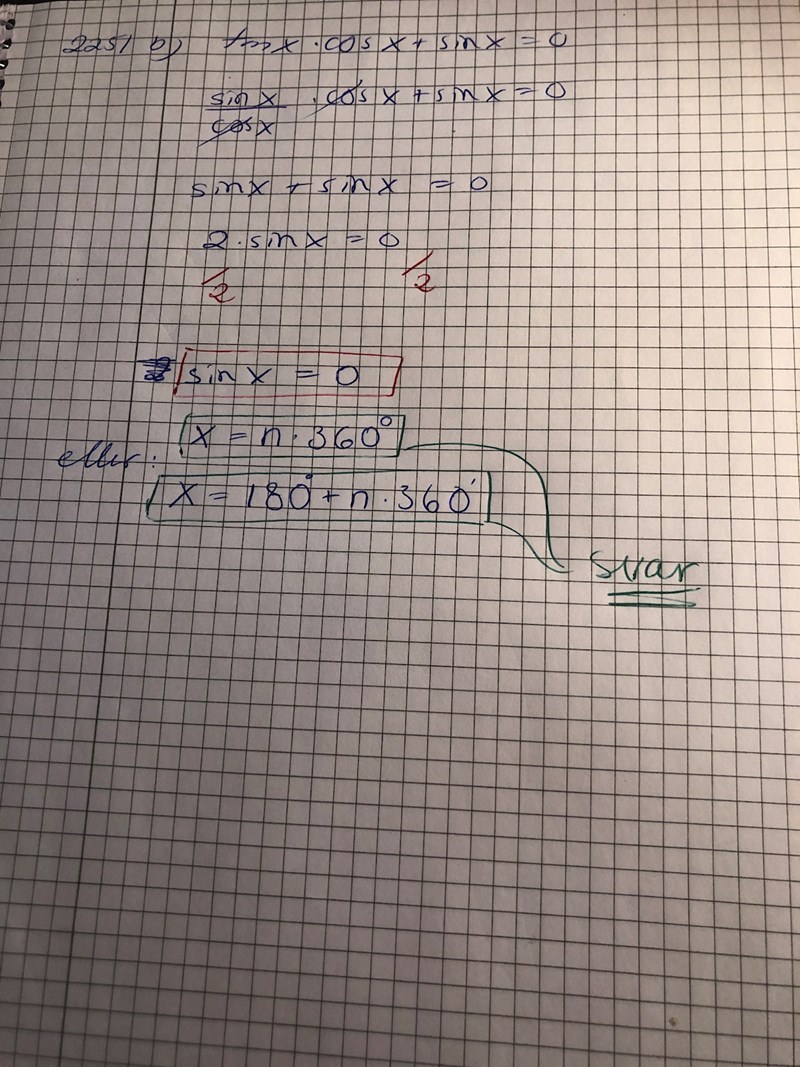 2251 a) tan x · cos x + sin x = 0
sin x / cos x · cos x + sin x = 0
sin x + sin x = 0
2 · sin x = 0
/2 /2
sin x = 0
x = n · 360°
eller:
x = 180° + n · 360°
svar